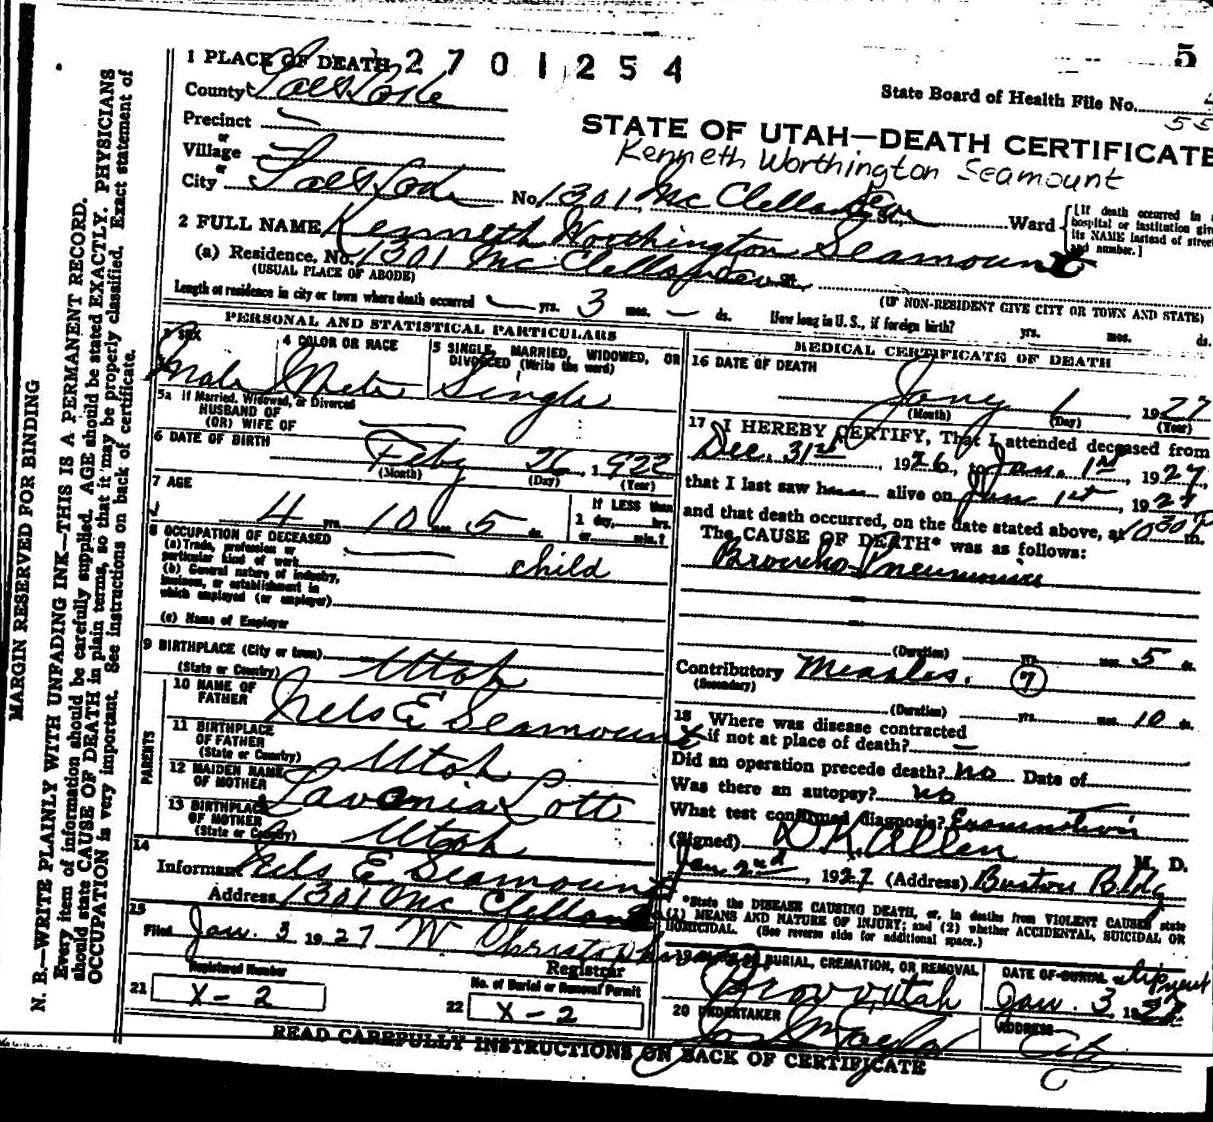 5
1 PLACE OF DEATH 2701254
State Board of Health File No.
County Salt Lake
55
Precinct
STATE OF UTAH—DEATH CERTIFICATE
or
Village
Kenneth Worthington Seamount
or
City Salt Lake No. 1301 Mc Clelland St., Ward
[If death occurred in a
hospital or institution give
its NAME instead of street
and number.]
2 FULL NAME Kenneth Worthington Seamount
(a) Residence. No. 1301 Mc Clelland St.
(USUAL PLACE OF ABODE)
(IF NON-RESIDENT GIVE CITY OR TOWN AND STATE)
Length of residence in city or town where death occurred — yrs. 3 mos. — ds. How long in U. S., if foreign birth? yrs. mos. ds.
PERSONAL AND STATISTICAL PARTICULARS
3 SEX
Male
4 COLOR OR RACE
White
5 SINGLE, MARRIED, WIDOWED, OR
DIVORCED (Write the word)
Single
5a If Married, Widowed, or Divorced
HUSBAND OF
(OR) WIFE OF
6 DATE OF BIRTH
Feby 26, 1922
(Month) (Day) (Year)
7 AGE
4 yrs. 10 mos. 5 ds.
If LESS than
1 day, hrs.
or min.?
8 OCCUPATION OF DECEASED
(a) Trade, profession or
particular kind of work
child
(b) General nature of industry,
business, or establishment in
which employed (or employer)
(c) Name of Employer
9 BIRTHPLACE (City or town)
(State or Country) Utah
PARENTS
10 NAME OF
FATHER Nels E Seamount
11 BIRTHPLACE
OF FATHER
(State or Country) Utah
12 MAIDEN NAME
OF MOTHER Lavonia Lott
13 BIRTHPLACE
OF MOTHER
(State or Country) Utah
14
Informant Nels E Seamount
Address 1301 Mc Clelland
15
Filed Jan. 3 1927 W Christopherson
Registrar
Registered Number
21 X-2
No. of Burial or Removal Permit
22 X-2
MEDICAL CERTIFICATE OF DEATH
16 DATE OF DEATH
Jany 1 1927
(Month) (Day) (Year)
17 I HEREBY CERTIFY, That I attended deceased from
Dec. 31st, 1926, to Jan. 1st, 1927,
that I last saw h alive on Jan 1st, 1927
and that death occurred, on the date stated above, at 10:30 P m.
The CAUSE OF DEATH* was as follows:
Broncho-Pneumonia
(Duration) yrs. mos. 5 ds.
Contributory Measles. 7
(Secondary)
(Duration) yrs. mos. 10 ds.
18 Where was disease contracted
if not at place of death? —
Did an operation precede death? no Date of
Was there an autopsy? no
What test confirmed diagnosis? Examination
(Signed) D K Allen M. D.
Jan. 2nd, 1927 (Address) Boston Bldg
*State the DISEASE CAUSING DEATH, or, in deaths from VIOLENT CAUSES state
(1) MEANS AND NATURE OF INJURY; and (2) whether ACCIDENTAL, SUICIDAL OR
HOMICIDAL. (See reverse side for additional space.)
19 BURIAL, CREMATION, OR REMOVAL
Provo, Utah
DATE OF BURIAL shipment
Jan. 3, 1927
20 UNDERTAKER
ADDRESS
City
READ CAREFULLY INSTRUCTIONS ON BACK OF CERTIFICATE
MARGIN RESERVED FOR BINDING
N. B.—WRITE PLAINLY WITH UNFADING INK—THIS IS A PERMANENT RECORD.
Every item of information should be carefully supplied. AGE should be stated EXACTLY. PHYSICIANS
should state CAUSE OF DEATH in plain terms, so that it may be properly classified. Exact statement of
OCCUPATION is very important. See instructions on back of certificate.